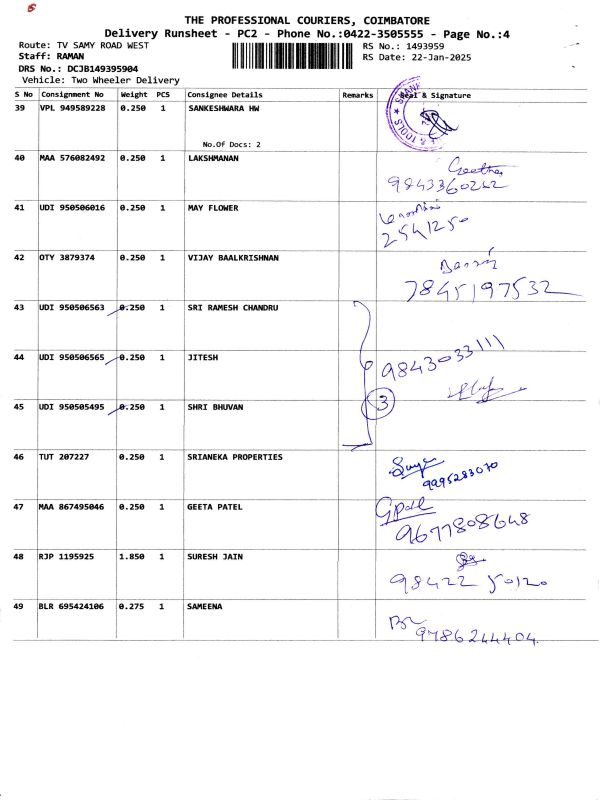 5
THE PROFESSIONAL COURIERS, COIMBATORE
Delivery Runsheet - PC2 - Phone No.:0422-3505555 - Page No.:4
Route: TV SAMY ROAD WEST RS No.: 1493959
Staff: RAMAN RS Date: 22-Jan-2025
DRS No.: DCJB149395904
Vehicle: Two Wheeler Delivery
S No Consignment No Weight PCS Consignee Details Remarks Seal & Signature
39 VPL 949589228 0.250 1 SANKESHWARA HW
& TOOLS
No.Of Docs: 2
40 MAA 576082492 0.250 1 LAKSHMANAN
Geetha
9843360242
41 UDI 950506016 0.250 1 MAY FLOWER
2541250
42 OTY 3879374 0.250 1 VIJAY BAALKRISHNAN
7845197532
43 UDI 950506563 0.250 1 SRI RAMESH CHANDRU
44 UDI 950506565 0.250 1 JITESH
9843033111
45 UDI 950505495 0.250 1 SHRI BHUVAN
3
46 TUT 207227 0.250 1 SRIANEKA PROPERTIES
9995283070
47 MAA 867495046 0.250 1 GEETA PATEL
9677808648
48 RJP 1195925 1.850 1 SURESH JAIN
98422 50120
49 BLR 695424106 0.275 1 SAMEENA
9786244404